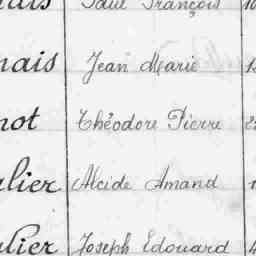 Paul François
nais Jean Marie
not Théodore Pierre
lier Alcide Amand
lier Joseph Edouard